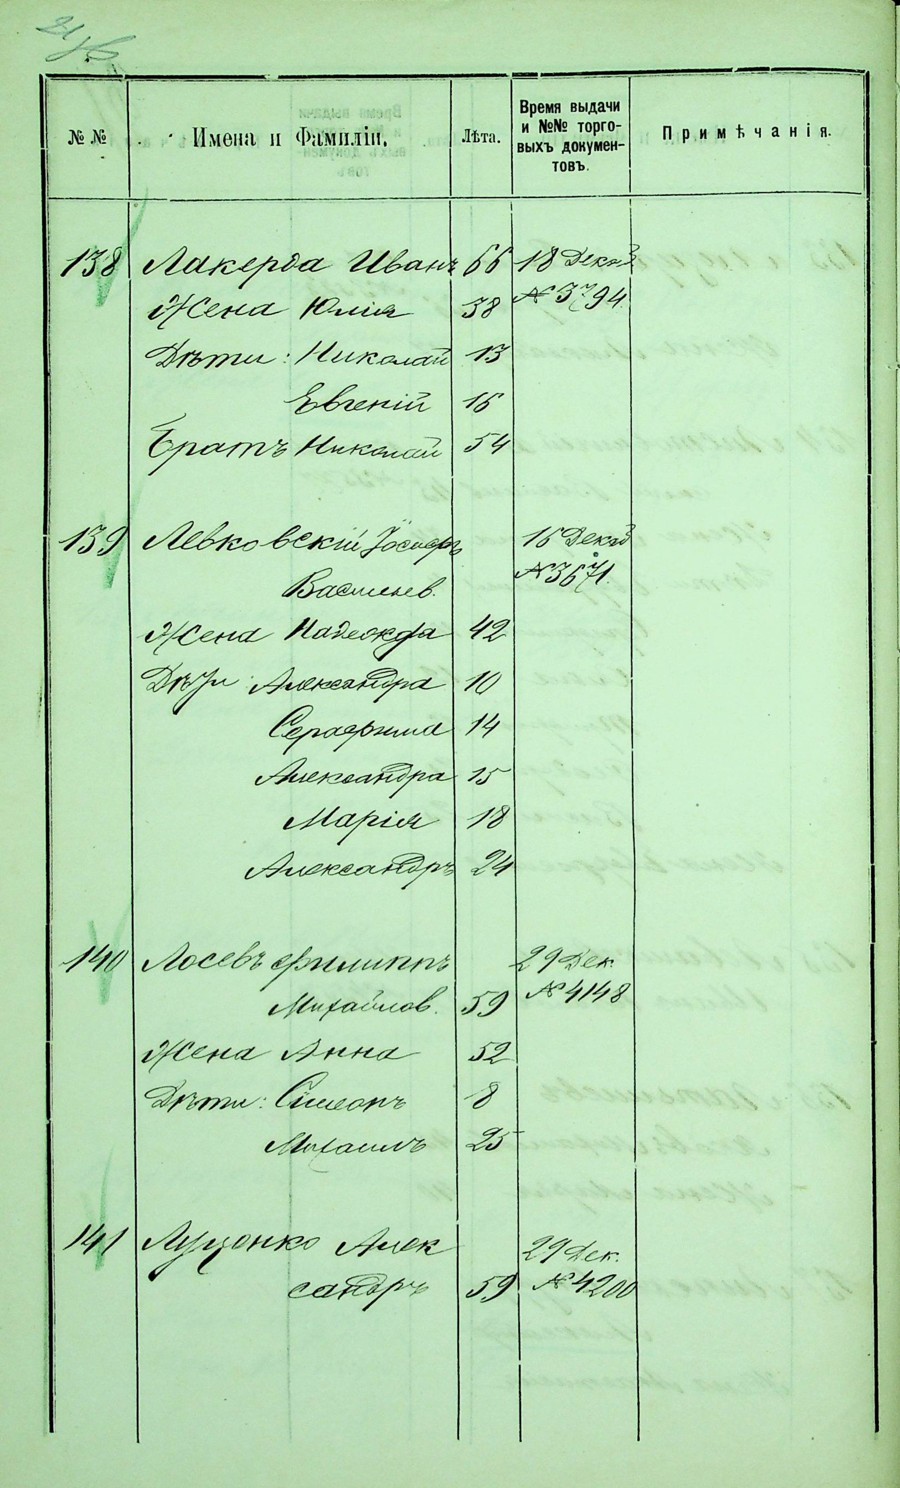 № №
Имена и Фамиліи.
Лѣта.
Время выдачи
и №№ торго-
выхъ докумен-
товъ.
Примѣчанія.
138 Лакерда Иванъ 66 18 Декаб
Жена Юлія 38 № 3794
Дѣти: Николай 13
Евгеній 16
Братъ Николай 54
139 Левковскій Іосифъ 16 Декаб
Васильев. № 3671.
Жена Надежда 42
Дѣти Александра 10
Серафима 14
Александра 15
Марія 18
Александръ 24
140 Лосевъ Филиппъ 29 Дек.
Михайлов. 59 № 4148
Жена Анна 52
Дѣти: Симеонъ 8
Михаилъ 25
141 Луценко Алек 29 Дек.
сандръ 59 № 4200